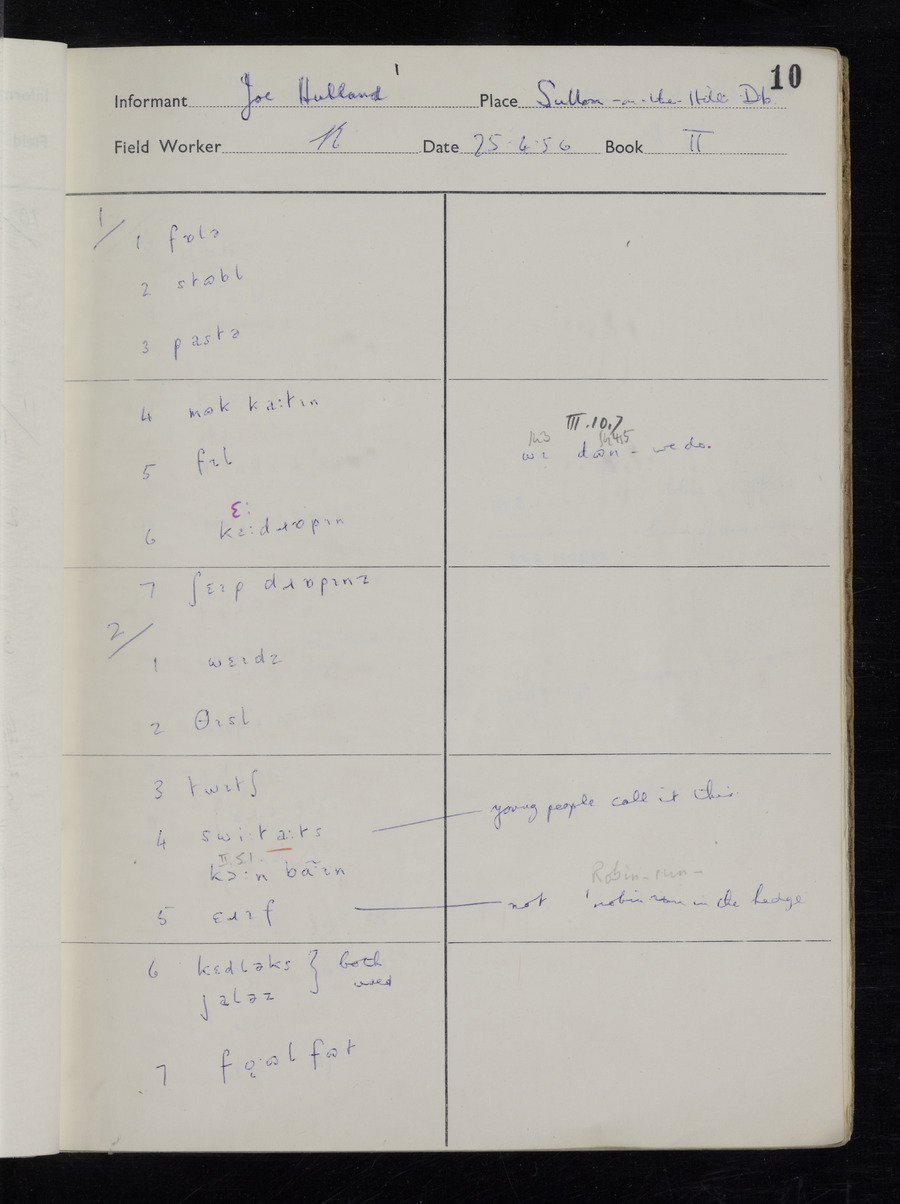 10
Informant Joe Hulland Place Sutton-on-the-Hill Db
Field Worker Date 25.4.56 Book II
1/
1 falə
2 stabl
3 pastə
4 mʊk ka:tɪn
5 fɪl
III.10.7
wɪ dʊn - we do.
ɛ:
6 kɪ:dɹɒpɪn
7 ʃɛɪp dɹɒpɪnz
2/
1 wɛɪdz
2 θɪsl
3 twɪtʃ
4 swi:ta:ts young people call it this
II.5.1.
kɔ:n baɪn
Robin-run-
5 ɛɹɪf not 'robin run in the hedge
6 kɛdləks } both
jaləz used
7 fo̜:ʊlfʊt